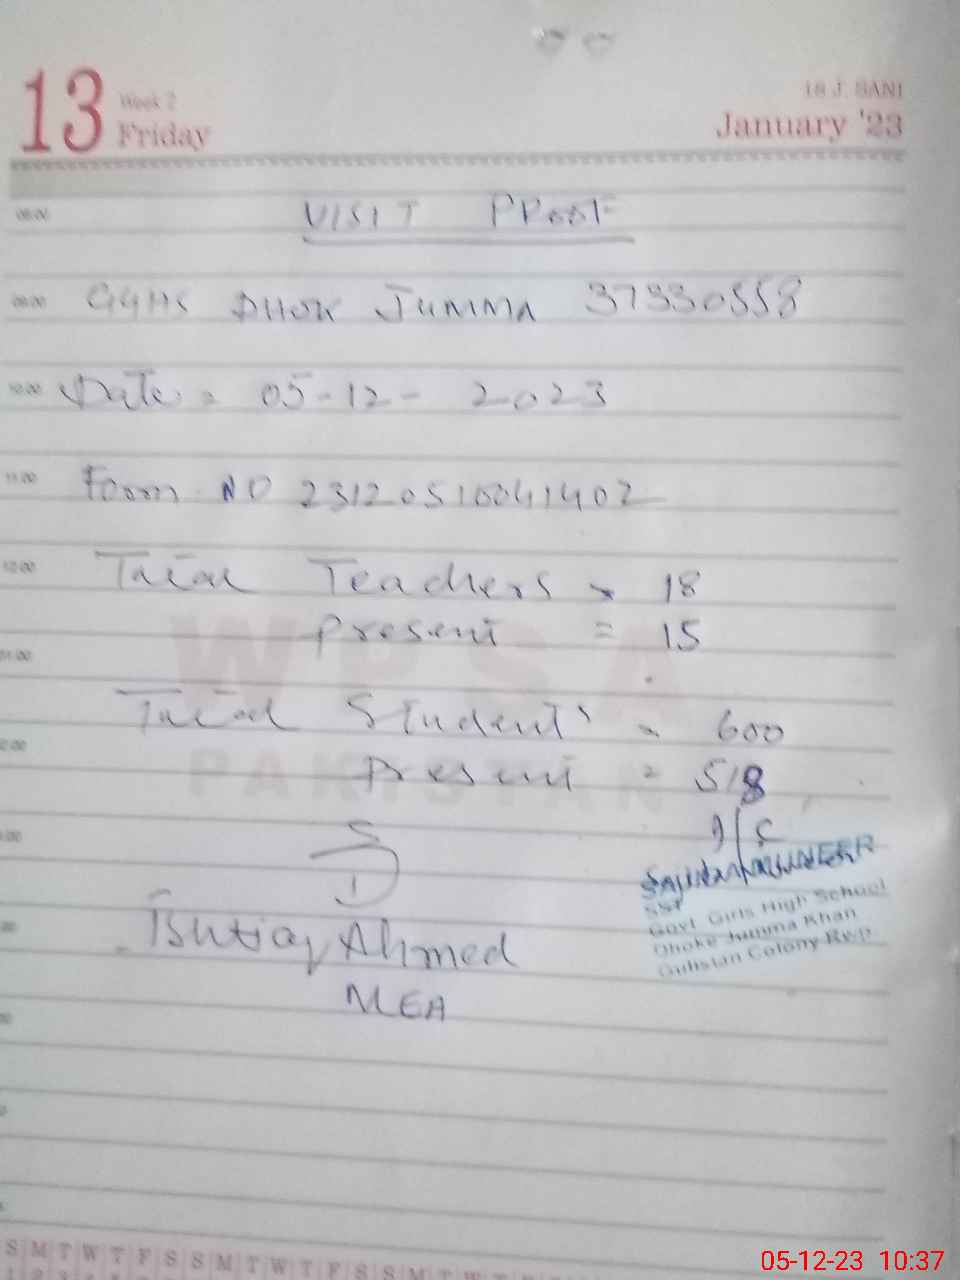 13 Week 2 Friday
18 J. SANI
January '23
08:00 VISIT PROOF
09:00 GGHS DHOK JUMMA 37330558
10:00 Date = 05-12-2023
11:00 Form NO 23120510041402
12:00 Total Teachers = 18
Present = 15
01:00
WPSA
Total Students = 600
2:00 Present = 518
PAKISTAN
I/C
SST
Govt Girls High School
Dhoke Jumma Khan
Gulistan Colony Rwp
Ishtiaq Ahmed
MEA
S M T W T F S S M T W T F S S M T W T
05-12-23 10:37